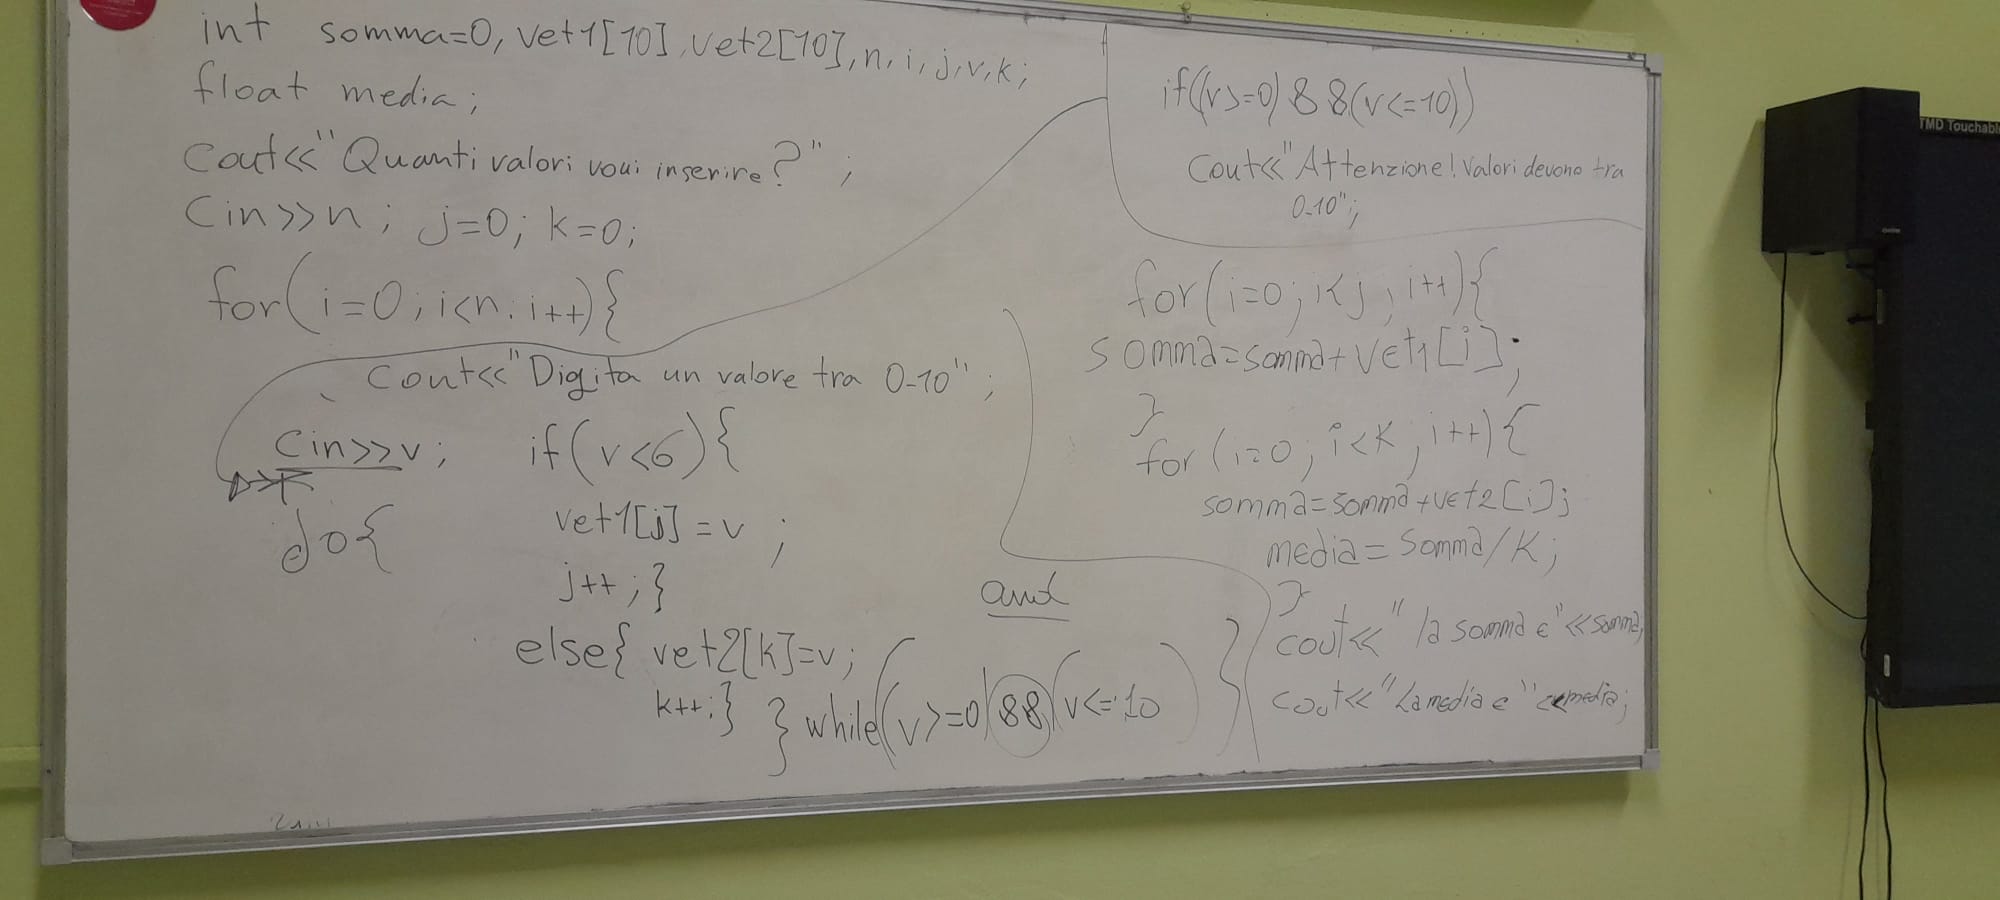 int somma=0, vet1[10], vet2[10], n, i, j, v, k;
float media;
Cout<<"Quanti valori vuoi inserire?";
Cin>>n; j=0; k=0;
for(i=0; i<n; i++){
Cout<<"Digita un valore tra 0-10";
Cin>>v; if(v<6){
do{ vet1[j]=v;
j++;}
else{ vet2[k]=v;
k++;} } while(v>=0)&&(v<=10) }
and
if((v>=0)&&(v<=10))
Cout<<"Attenzione! Valori devono tra
0-10";
for(i=0; i<j; i++){
somma=somma+vet1[i];
}
for(i=0; i<k; i++){
somma=somma+vet2[i];
media=somma/k;
}
cout<<"la somma e"<<somma;
cout<<"La media e"<<media;
TMD Touchabl